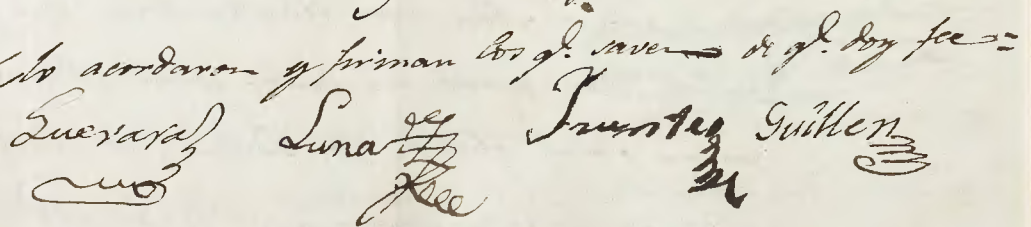 lo acordaron y firman los q.e saven de q.e doy fee=
Guevara Luna Fuentes Guillen